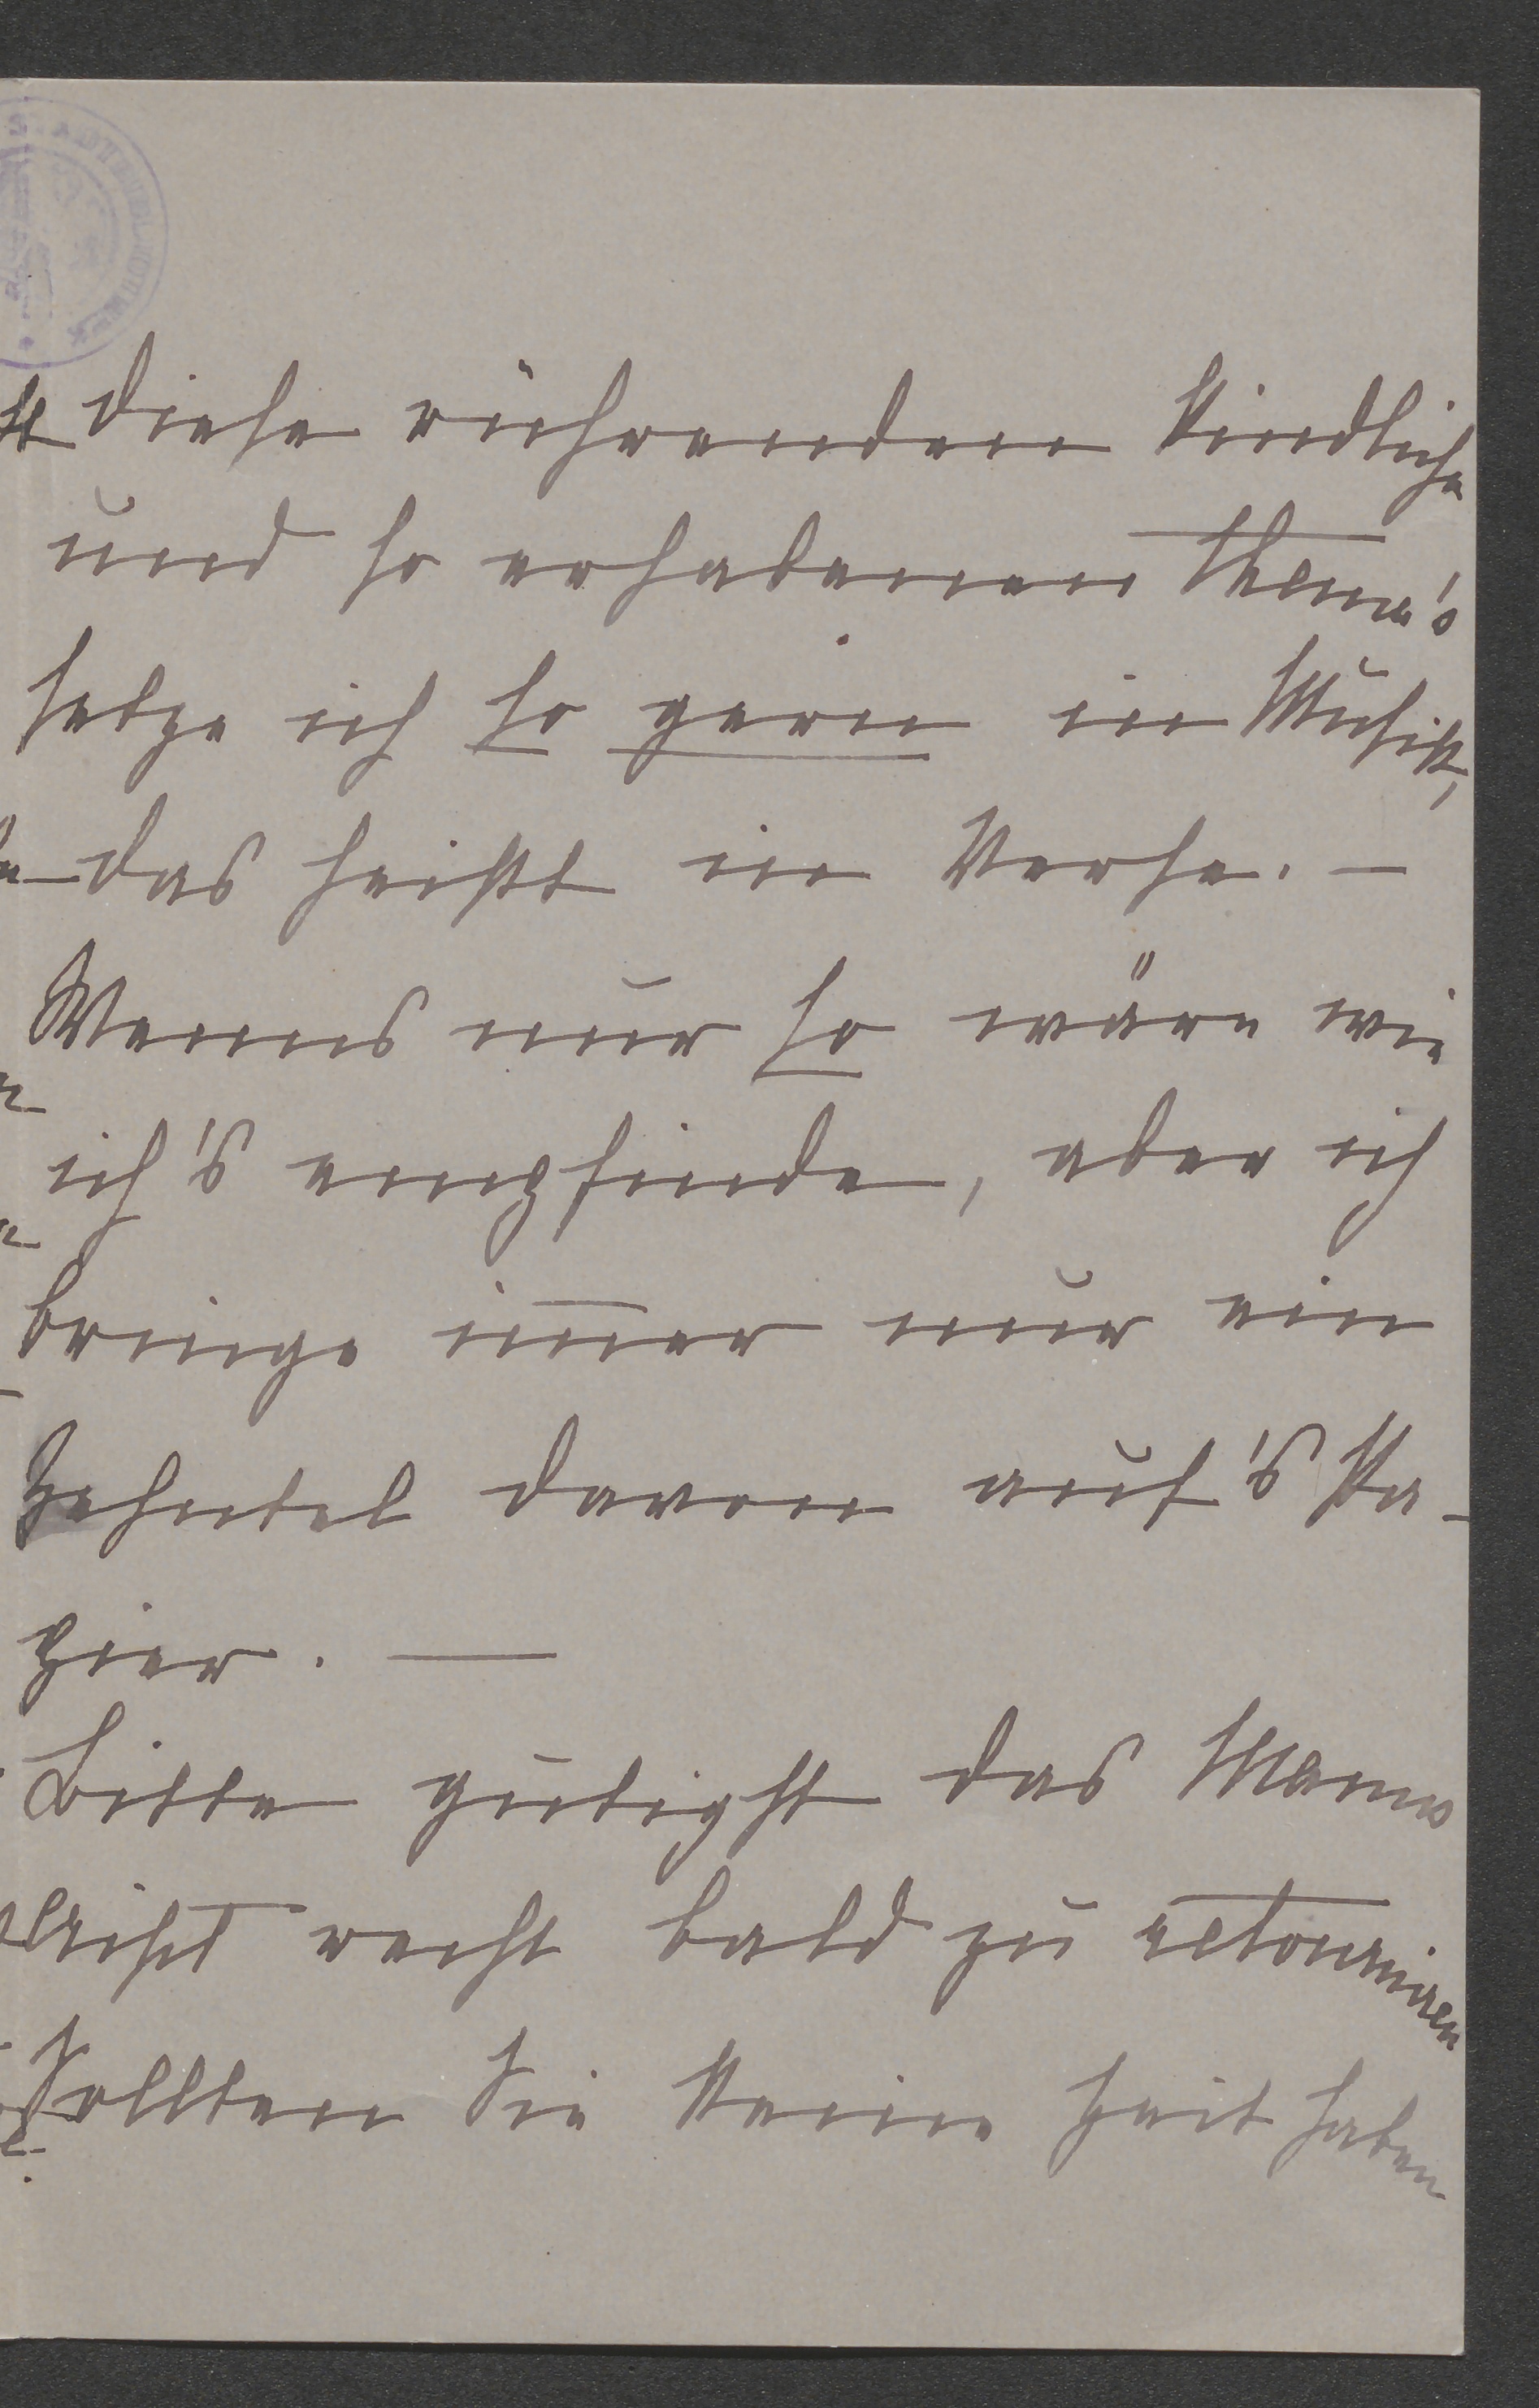 diese rührenden kindliche
und so erhabenen Thema's
setze ich so gern in Musik,
das heißt in Verse. —
Wenns nur so wäre wie
ich's empfinde, aber ich
bringe im̅er nur ein
Zehntel davon auf's Pa-
pier. —
Bitte gütigst das Manu
skript recht bald zu retouniren
Sollten Sie keine Zeit haben